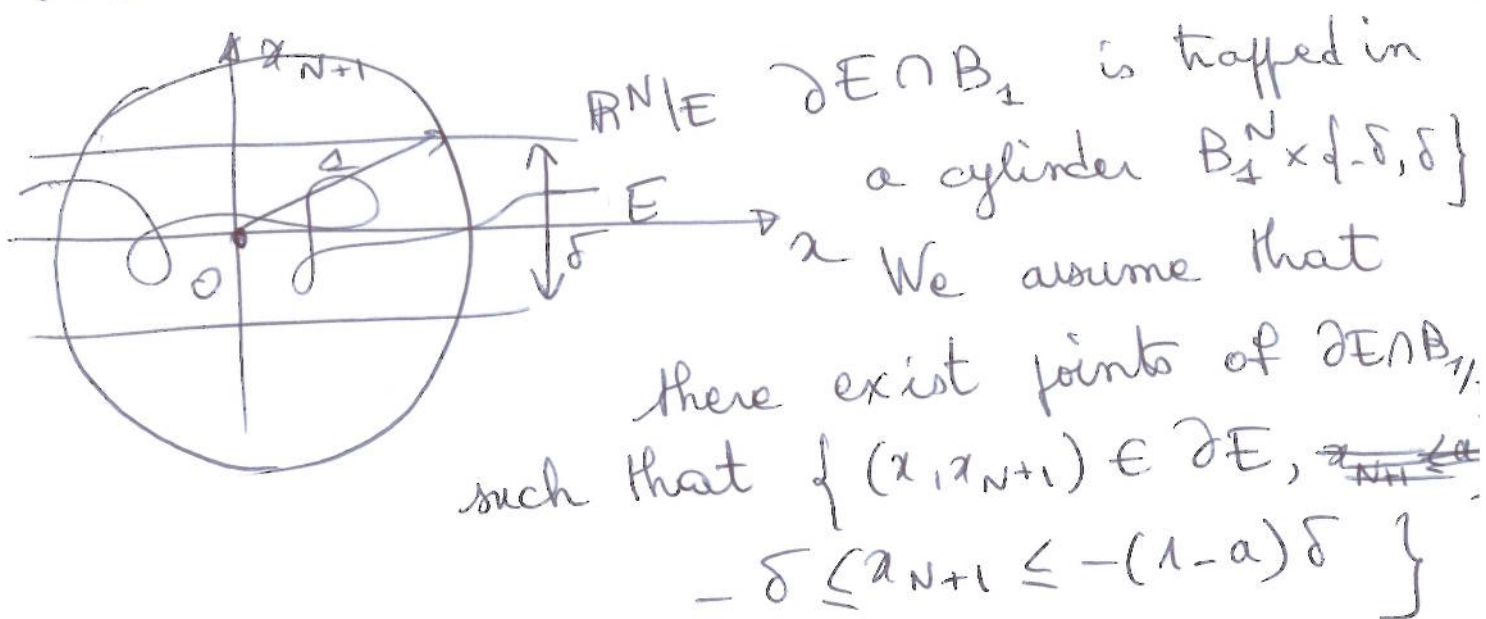 x_{N+1}
ℝ^N\E ∂E∩B_1 is trapped in
a cylinder B_1^N × {-δ, δ}
E
δ
x
0
We assume that
there exist points of ∂E∩B_{1/
such that { (x, x_{N+1}) ∈ ∂E,
-δ ≤ x_{N+1} ≤ -(1-a)δ }